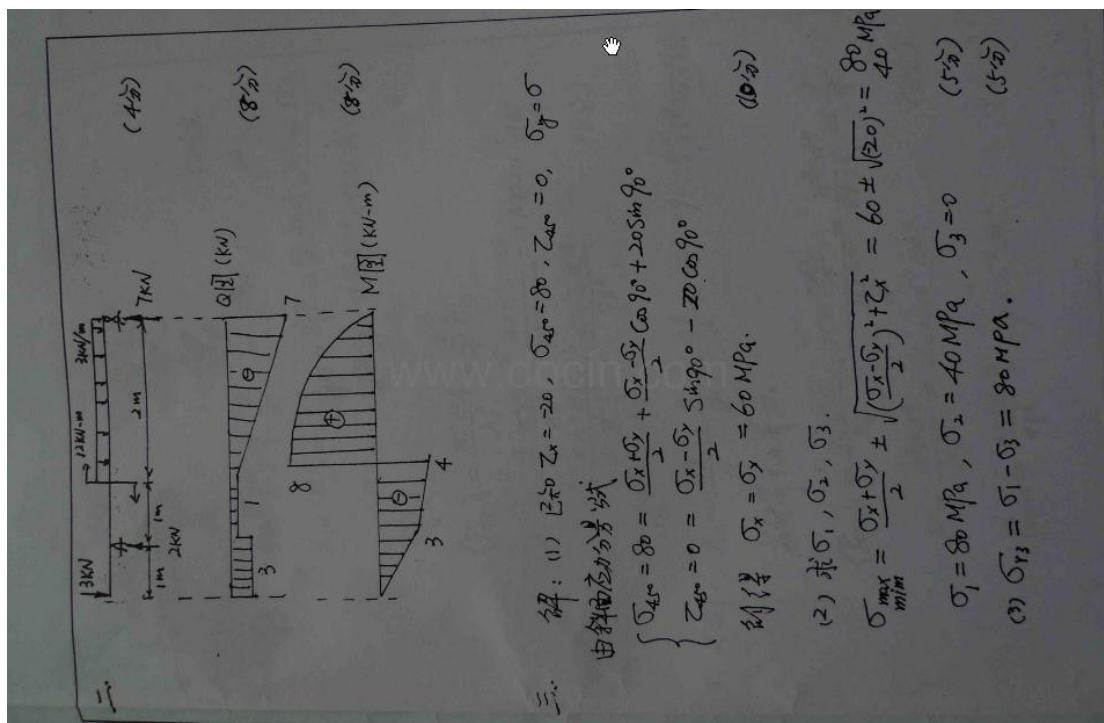 二.
3KN
12KN-m
3KN/m
2KN
7KN
1m
1m
2m
(4分)
Q图(KN)
3
1
⊖
7
(8分)
M图(KN-m)
8
⊕
⊖
3
4
(8分)
三. 解: (1) 已知 τx=-20, σ45°=80, τ45°=0, σy=σ
由斜面应力公式
σ45°=80= (σx+σy)/2 + (σx-σy)/2 cos90°+20sin90°
τ45°=0= (σx-σy)/2 sin90° - 20cos90°
σx=σy=60MPa.
(10分)
(2) 求σ1, σ2, σ3.
σmax/min = (σx+σy)/2 ± √((σx-σy)/2)²+τx² = 60±√(-20)² = 80/40 MPa
σ1=80MPa, σ2=40MPa, σ3=0
(5分)
(3) σr3=σ1-σ3=80MPa.
(5分)
www.docin.com